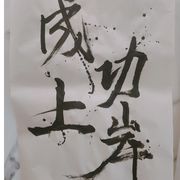 成功
上岸